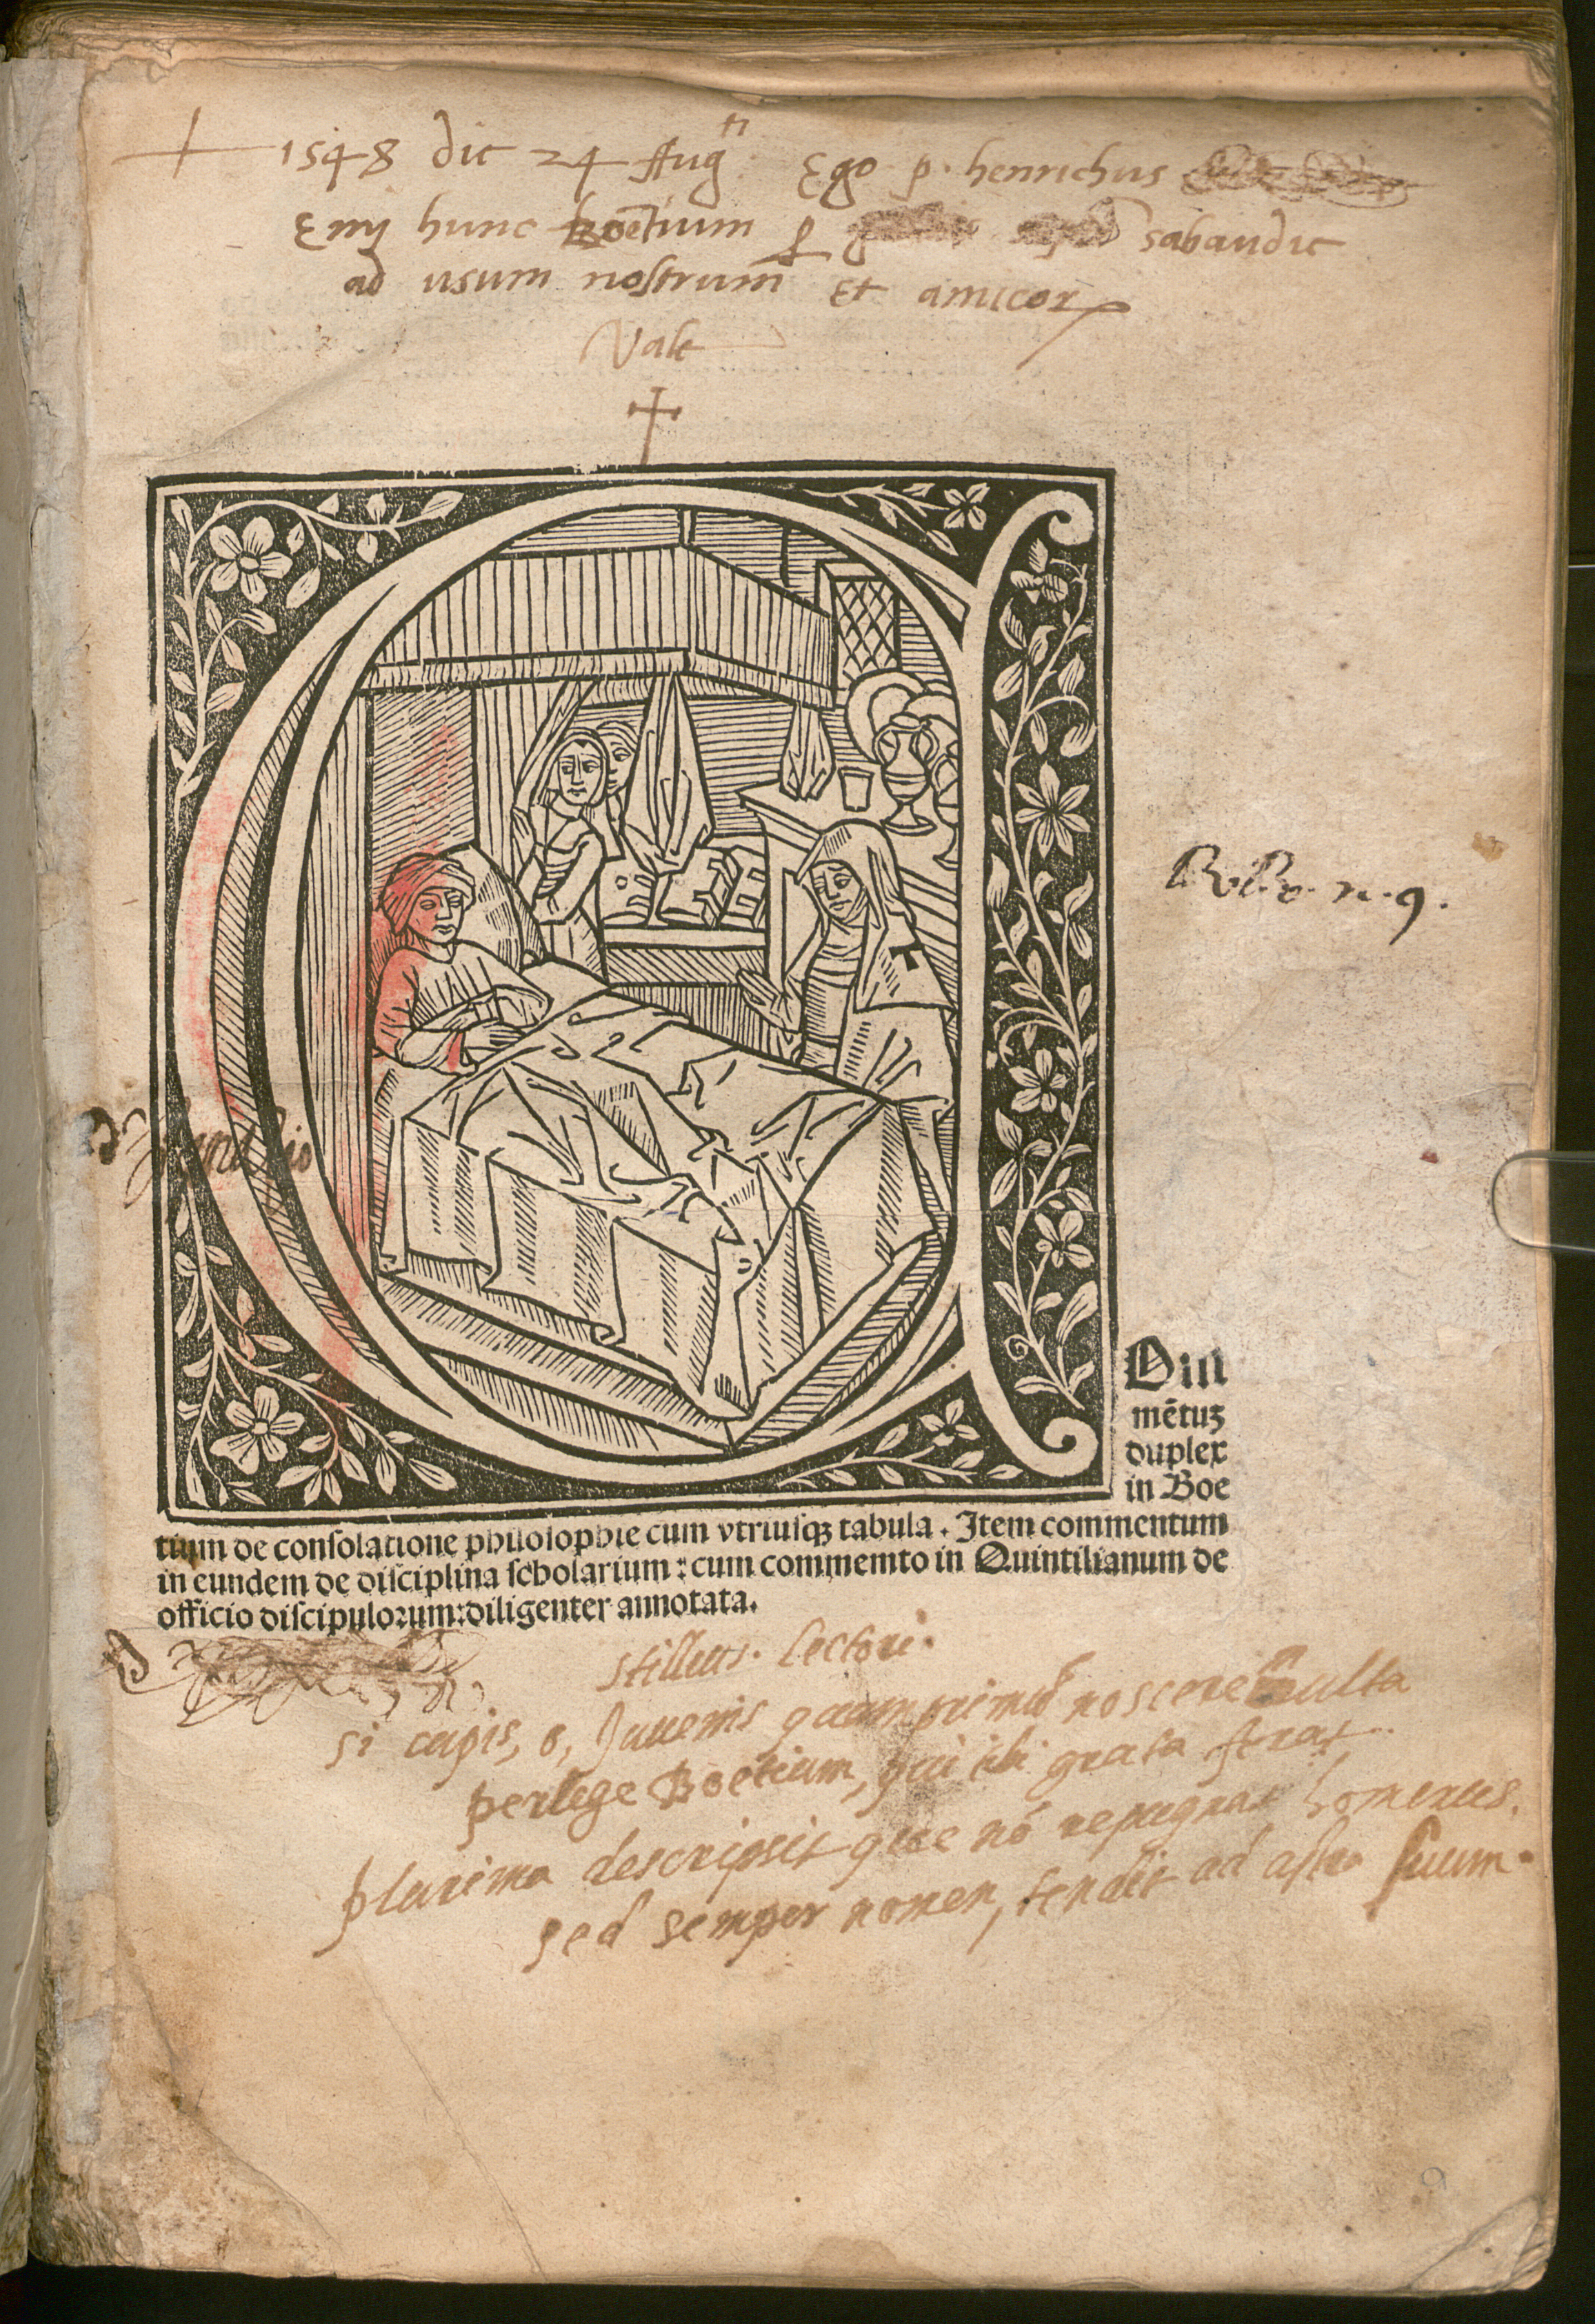 1548 die 24 Augti Ego p. henrichus
Emj hunc boetium sabaudie
ad usum nostrum et amicor
Vale
Om
mētuꝫ
duplex
in Boe
tium de conſolatione philoſophie cum vtriuſqꝫ tabula. Item commentum
in eundem de diſciplina ſcholarium: cum commemto in Quintilianum de
officio diſcipuloꝛum: diligenter annotata.
stilleus. Lectori.
si cupis, o, Juuenis quamprimū noscere multa
perlege Boetium, qui tibi grata ferat.
plurima descripsit que nō repugnat homerus.
sed semper nomen, tendit ad astra suum.